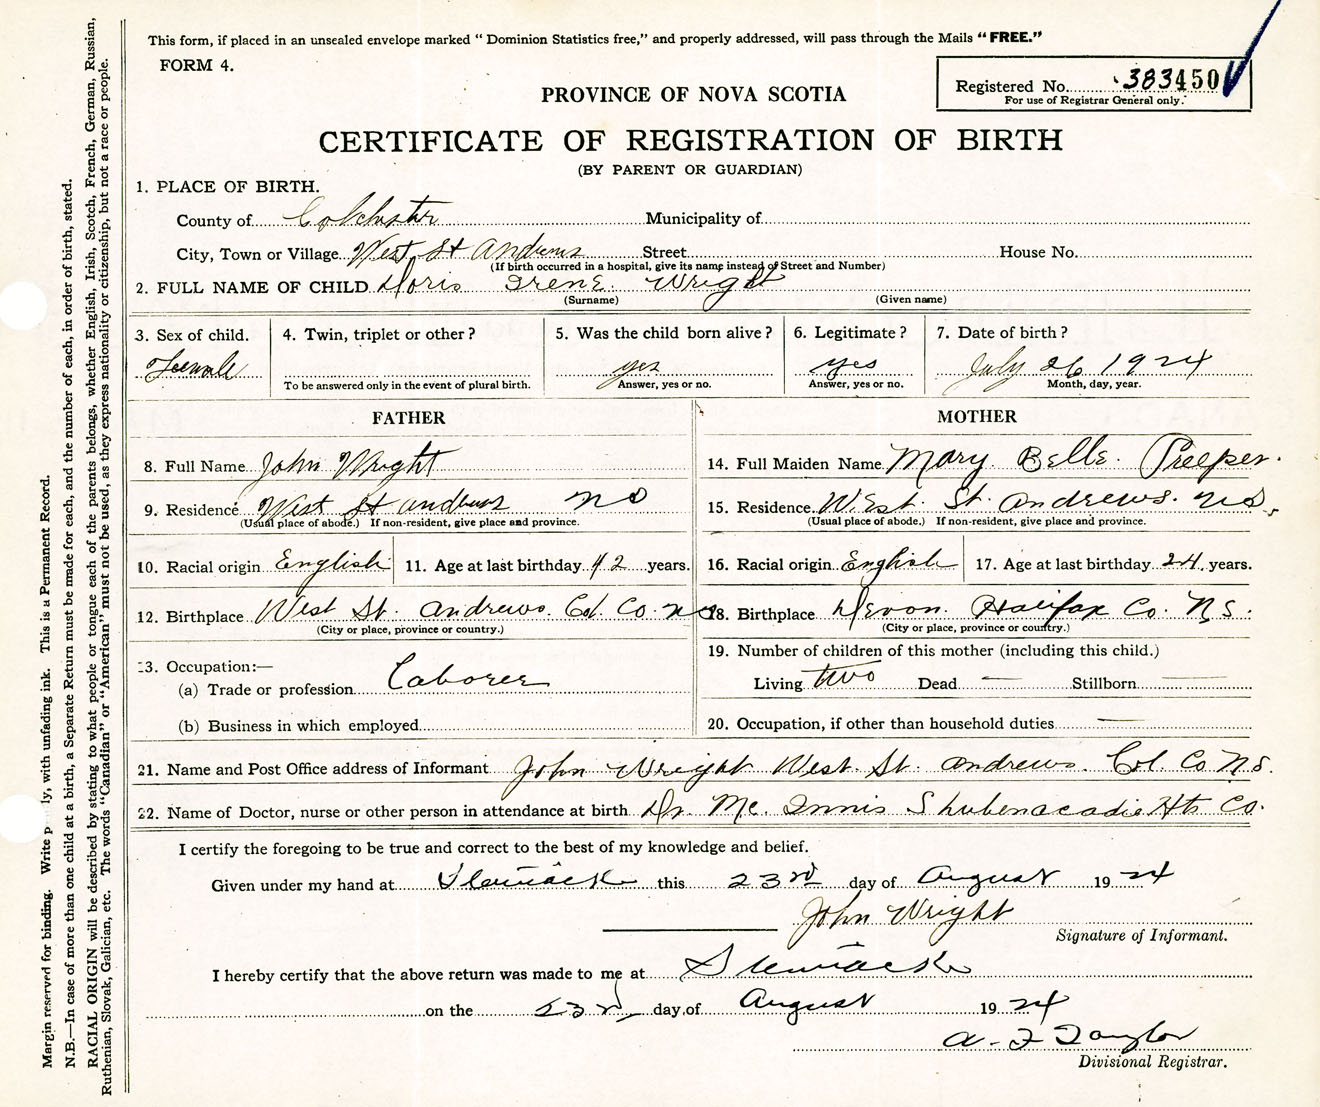 This form, if placed in an unsealed envelope marked " Dominion Statistics free," and properly addressed, will pass through the Mails "FREE."
FORM 4.
Registered No. 383450
For use of Registrar General only.
PROVINCE OF NOVA SCOTIA
CERTIFICATE OF REGISTRATION OF BIRTH
(BY PARENT OR GUARDIAN)
1. PLACE OF BIRTH.
County of Colchester Municipality of
City, Town or Village West St Andrews Street House No.
(If birth occurred in a hospital, give its name instead of Street and Number)
2. FULL NAME OF CHILD Doris Irene Wright
(Surname) (Given name)
3. Sex of child. 4. Twin, triplet or other? 5. Was the child born alive? 6. Legitimate? 7. Date of birth?
Female yes yes July 26 1924
To be answered only in the event of plural birth. Answer, yes or no. Answer, yes or no. Month, day, year.
FATHER MOTHER
8. Full Name John Wright 14. Full Maiden Name Mary Belle Preeper.
9. Residence West St Andrews NS 15. Residence West St. Andrews. NS.
(Usual place of abode.) If non-resident, give place and province. (Usual place of abode.) If non-resident, give place and province.
10. Racial origin English 11. Age at last birthday 42 years. 16. Racial origin English 17. Age at last birthday 24 years.
12. Birthplace West St. Andrews. Col. Co. NS 18. Birthplace Devon. Halifax Co. N.S.
(City or place, province or country.) (City or place, province or country.)
13. Occupation:— 19. Number of children of this mother (including this child.)
(a) Trade or profession Laborer Living two Dead — Stillborn —
(b) Business in which employed 20. Occupation, if other than household duties —
21. Name and Post Office address of Informant John Wright West St. Andrews. Col. Co N.S.
22. Name of Doctor, nurse or other person in attendance at birth Dr. Mc. Innis Shubenacadie Hts Co.
I certify the foregoing to be true and correct to the best of my knowledge and belief.
Given under my hand at Stewiacke this 23rd day of August 1924
John Wright
Signature of Informant.
I hereby certify that the above return was made to me at Stewiacke
on the 23rd day of August 1924
A. F Taylor
Divisional Registrar.
Margin reserved for binding. Write ly, with unfading ink. This is a Permanent Record.
N.B.—In case of more than one child at a birth, a Separate Return must be made for each, and the number of each, in order of birth, stated.
RACIAL ORIGIN will be described by stating to what people or tongue each of the parents belongs, whether English, Irish, Scotch, French, German, Russian,
Ruthenian, Slovak, Galician, etc. The words "Canadian" or "American" must not be used, as they express nationality or citizenship, but not a race or people.